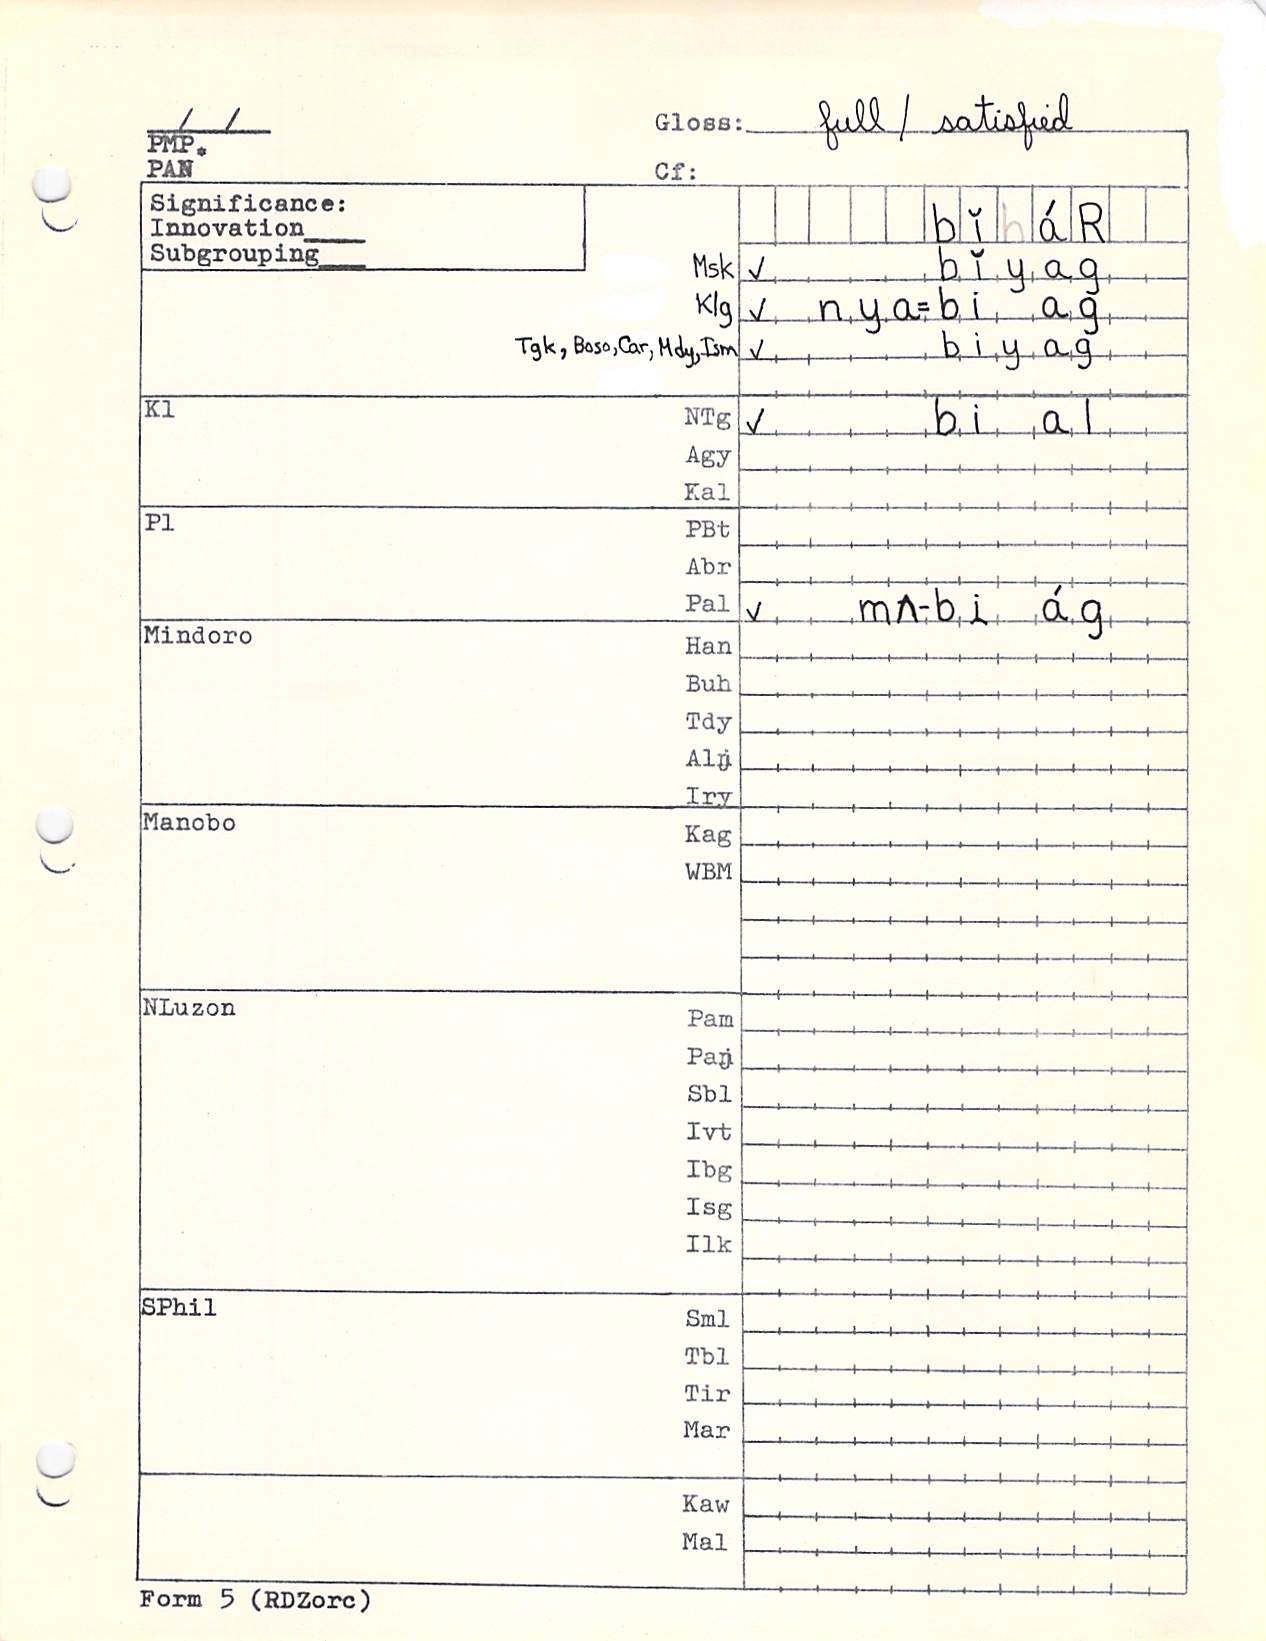 / /
PMP.
PAN
Gloss: full / satisfied
Cf:
Significance:
Innovation
Subgrouping
bĭ áR
Msk ✓ bĭyag
Klg ✓ nya=bi ag
Tgk, Boso, Car, Mdy, Ism ✓ biyag
Kl
NTg ✓ bi al
Agy
Kal
Pl
PBt
Abr
Pal ✓ mʌ-bi ág
Mindoro
Han
Buh
Tdy
Alŋ
Iry
Manobo
Kag
WBM
NLuzon
Pam
Paŋ
Sbl
Ivt
Ibg
Isg
Ilk
SPhil
Sml
Tbl
Tir
Mar
Kaw
Mal
Form 5 (RDZorc)